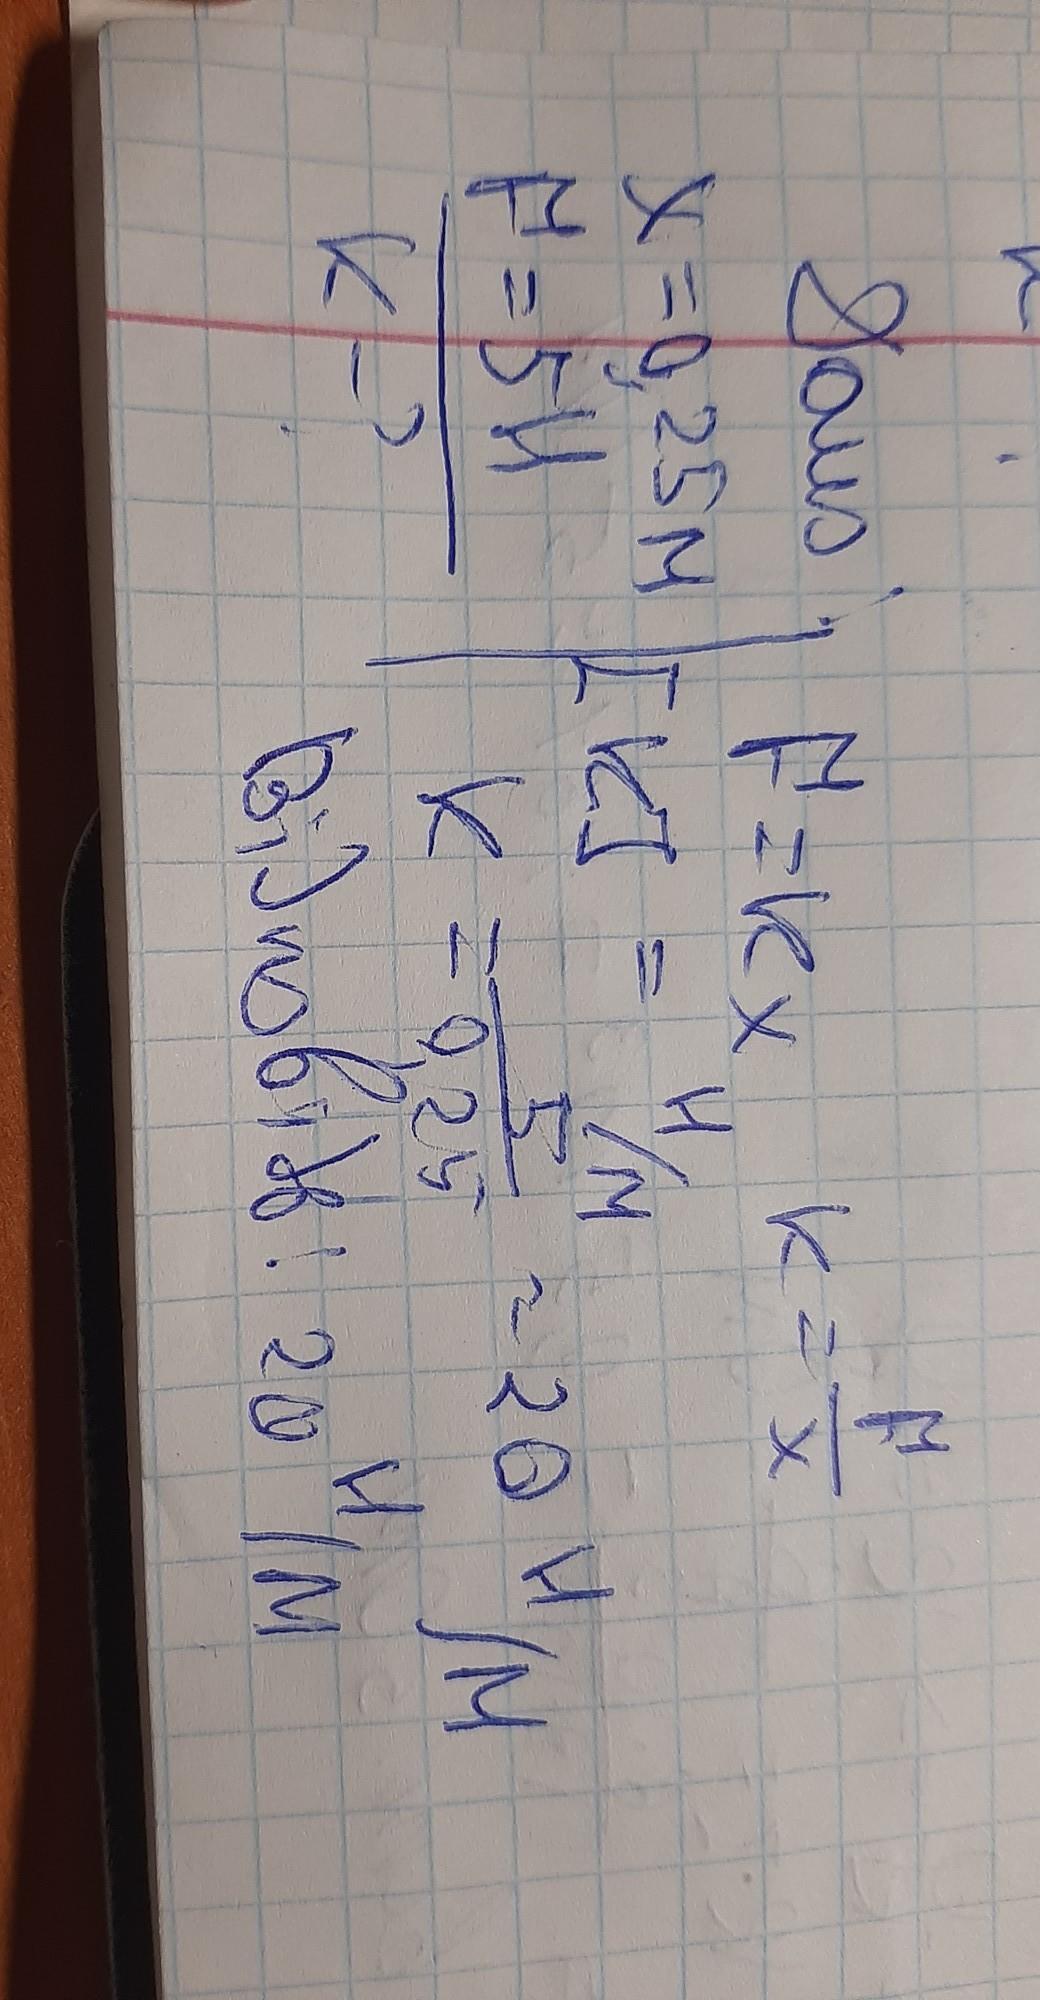 Дано:
x = 0,25 м
F = 5 Н
k - ?
F = kx k = F/x
[k] = Н/м
k = 5/0,25 ~ 20 Н/м
Відповідь: 20 Н/м